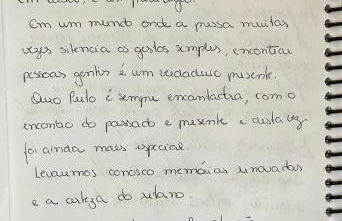 Em um mundo onde a pressa muitas
vezes silencia os gestos simples, encontrar
pessoas gentis é um verdadeiro presente.
Ouro Preto é sempre encantadora, com o
encontro do passado e presente e desta vez
foi ainda mais especial.
Levaremos conosco memórias renovadas
e a certeza do retorno.